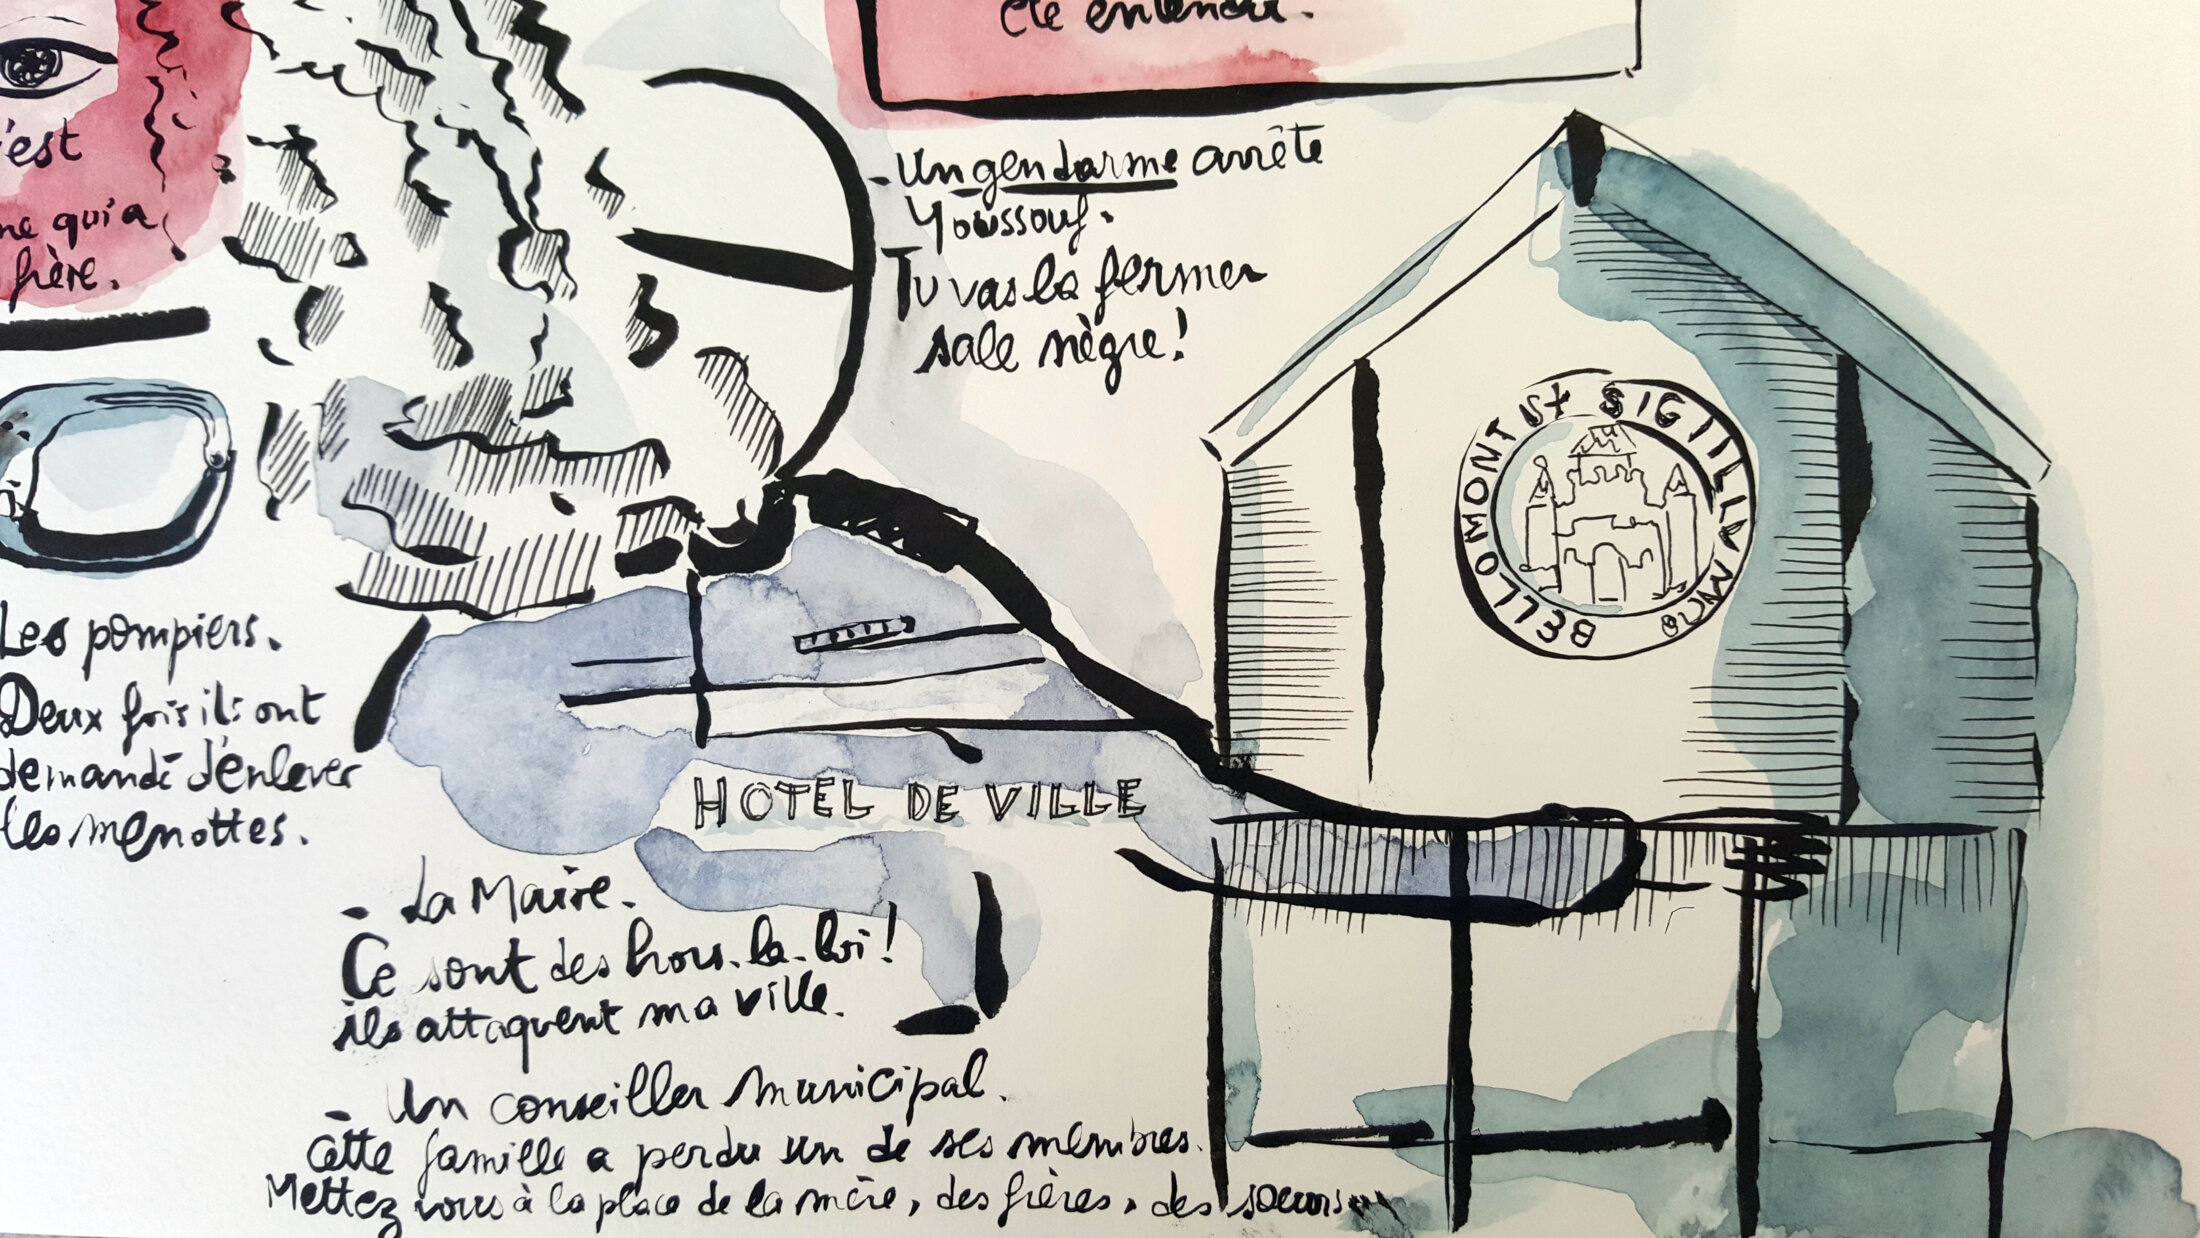 été entendu.
'est
ne qui a
frère.
- Un gendarme arrête
Youssouf.
Tu vas la fermer
sale nègre!
BELLOMONT
SIGILLUM
Les pompiers.
Deux fois ils ont
demandé d'enlever
les menottes.
HOTEL DE VILLE
- La Maire.
Ce sont des hors-la-loi!
ils attaquent ma ville.
- Un conseiller municipal.
Cette famille a perdu un de ses membres.
Mettez vous à la place de la mère, des frères, des soeurs